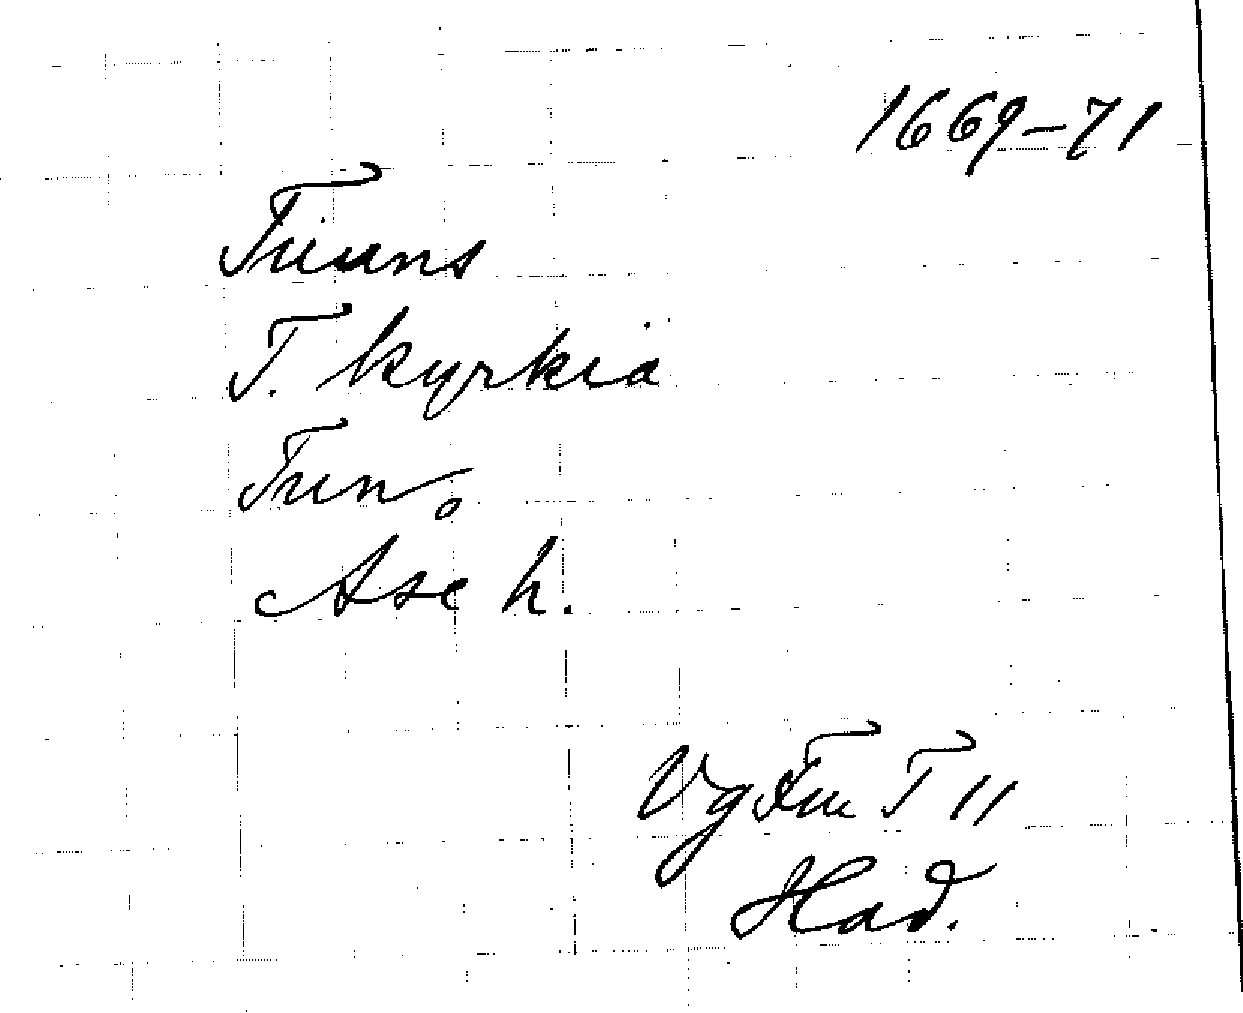 1669-71
Tuuns
T. kyrkia
Tun
Åse h.
Vg Fm T 11
Had.